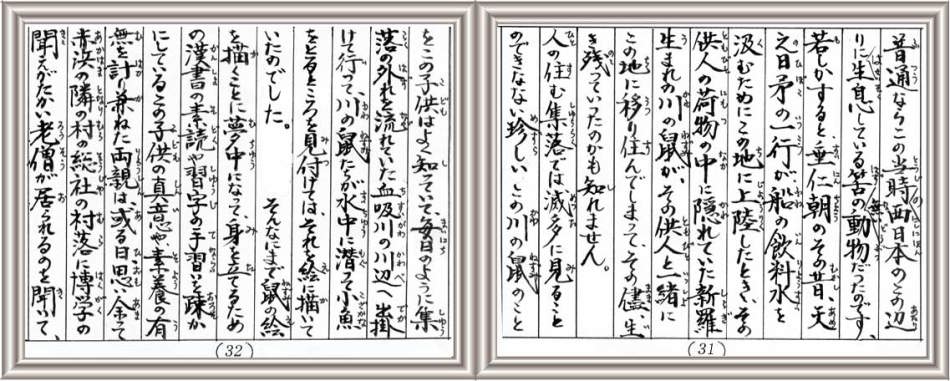 普通ならこの当時西日本のこの辺
りに生息している筈の無い動物だったのです、
若しかすると、垂仁朝のその昔、天
之日矛の一行が、船の飲料水を
汲むためにこの地に上陸したとき、その
供人の荷物の中に隠れていた新羅
生まれの川の鼠が、その供人と一緒に
この地に移り住んでしまって、その儘、生
き残っていったのかも知れません。
人の住む集落では滅多に見ること
のできなない珍しい、この川の鼠のこと
(31)
をこの子供はよく知っていて毎日のように集
落の外れを流れていた血吸川の川辺へ出掛
けて行って、川の鼠たちが水中に潜って小魚
をとるところを見付けては、それを絵に描いて
いたのでした。　そんなにまで鼠の絵
を描くことに夢中になって、身を立てるため
の漢書の素読や習字の手習を疎か
にしているこの子供の真意や、素養の有
無を計り兼ねた両親は、或る日思い余って
赤浜の隣の村の総社の村落に博学の
聞えがたかい老僧が居られるのを聞いて、
(32)